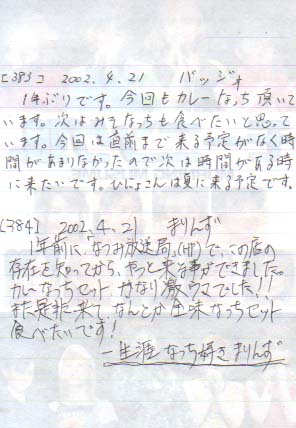 [383] 2002.4.21 バッジオ
1年ぶりです。今回もカレーなっち頂いて
います。次はみそなっちも食べたいと思って
います。今回は直前まで来る予定がなく時
間があまりなかったので次は時間がある時
に来たいです。ひにょさんは夏に来る予定です。
[384] 2002.4.21 まりんず
1年前に、なつみ放送局(HP)で、この店の
存在を知ってから、やっと来る事ができました。
カレーなっちセットかなり激ウマでした!!
また是非来て、なんとか全味なっちセット
食べたいです!
一生涯なっち好きまりんず